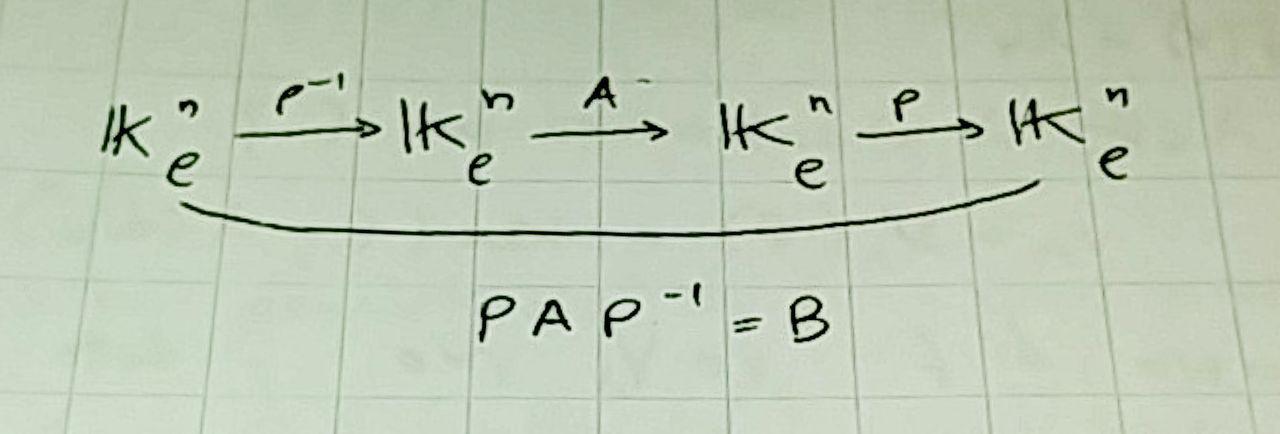 𝕂ⁿₑ —P⁻¹→ 𝕂ⁿₑ —A→ 𝕂ⁿₑ —P→ 𝕂ⁿₑ
PAP⁻¹ = B